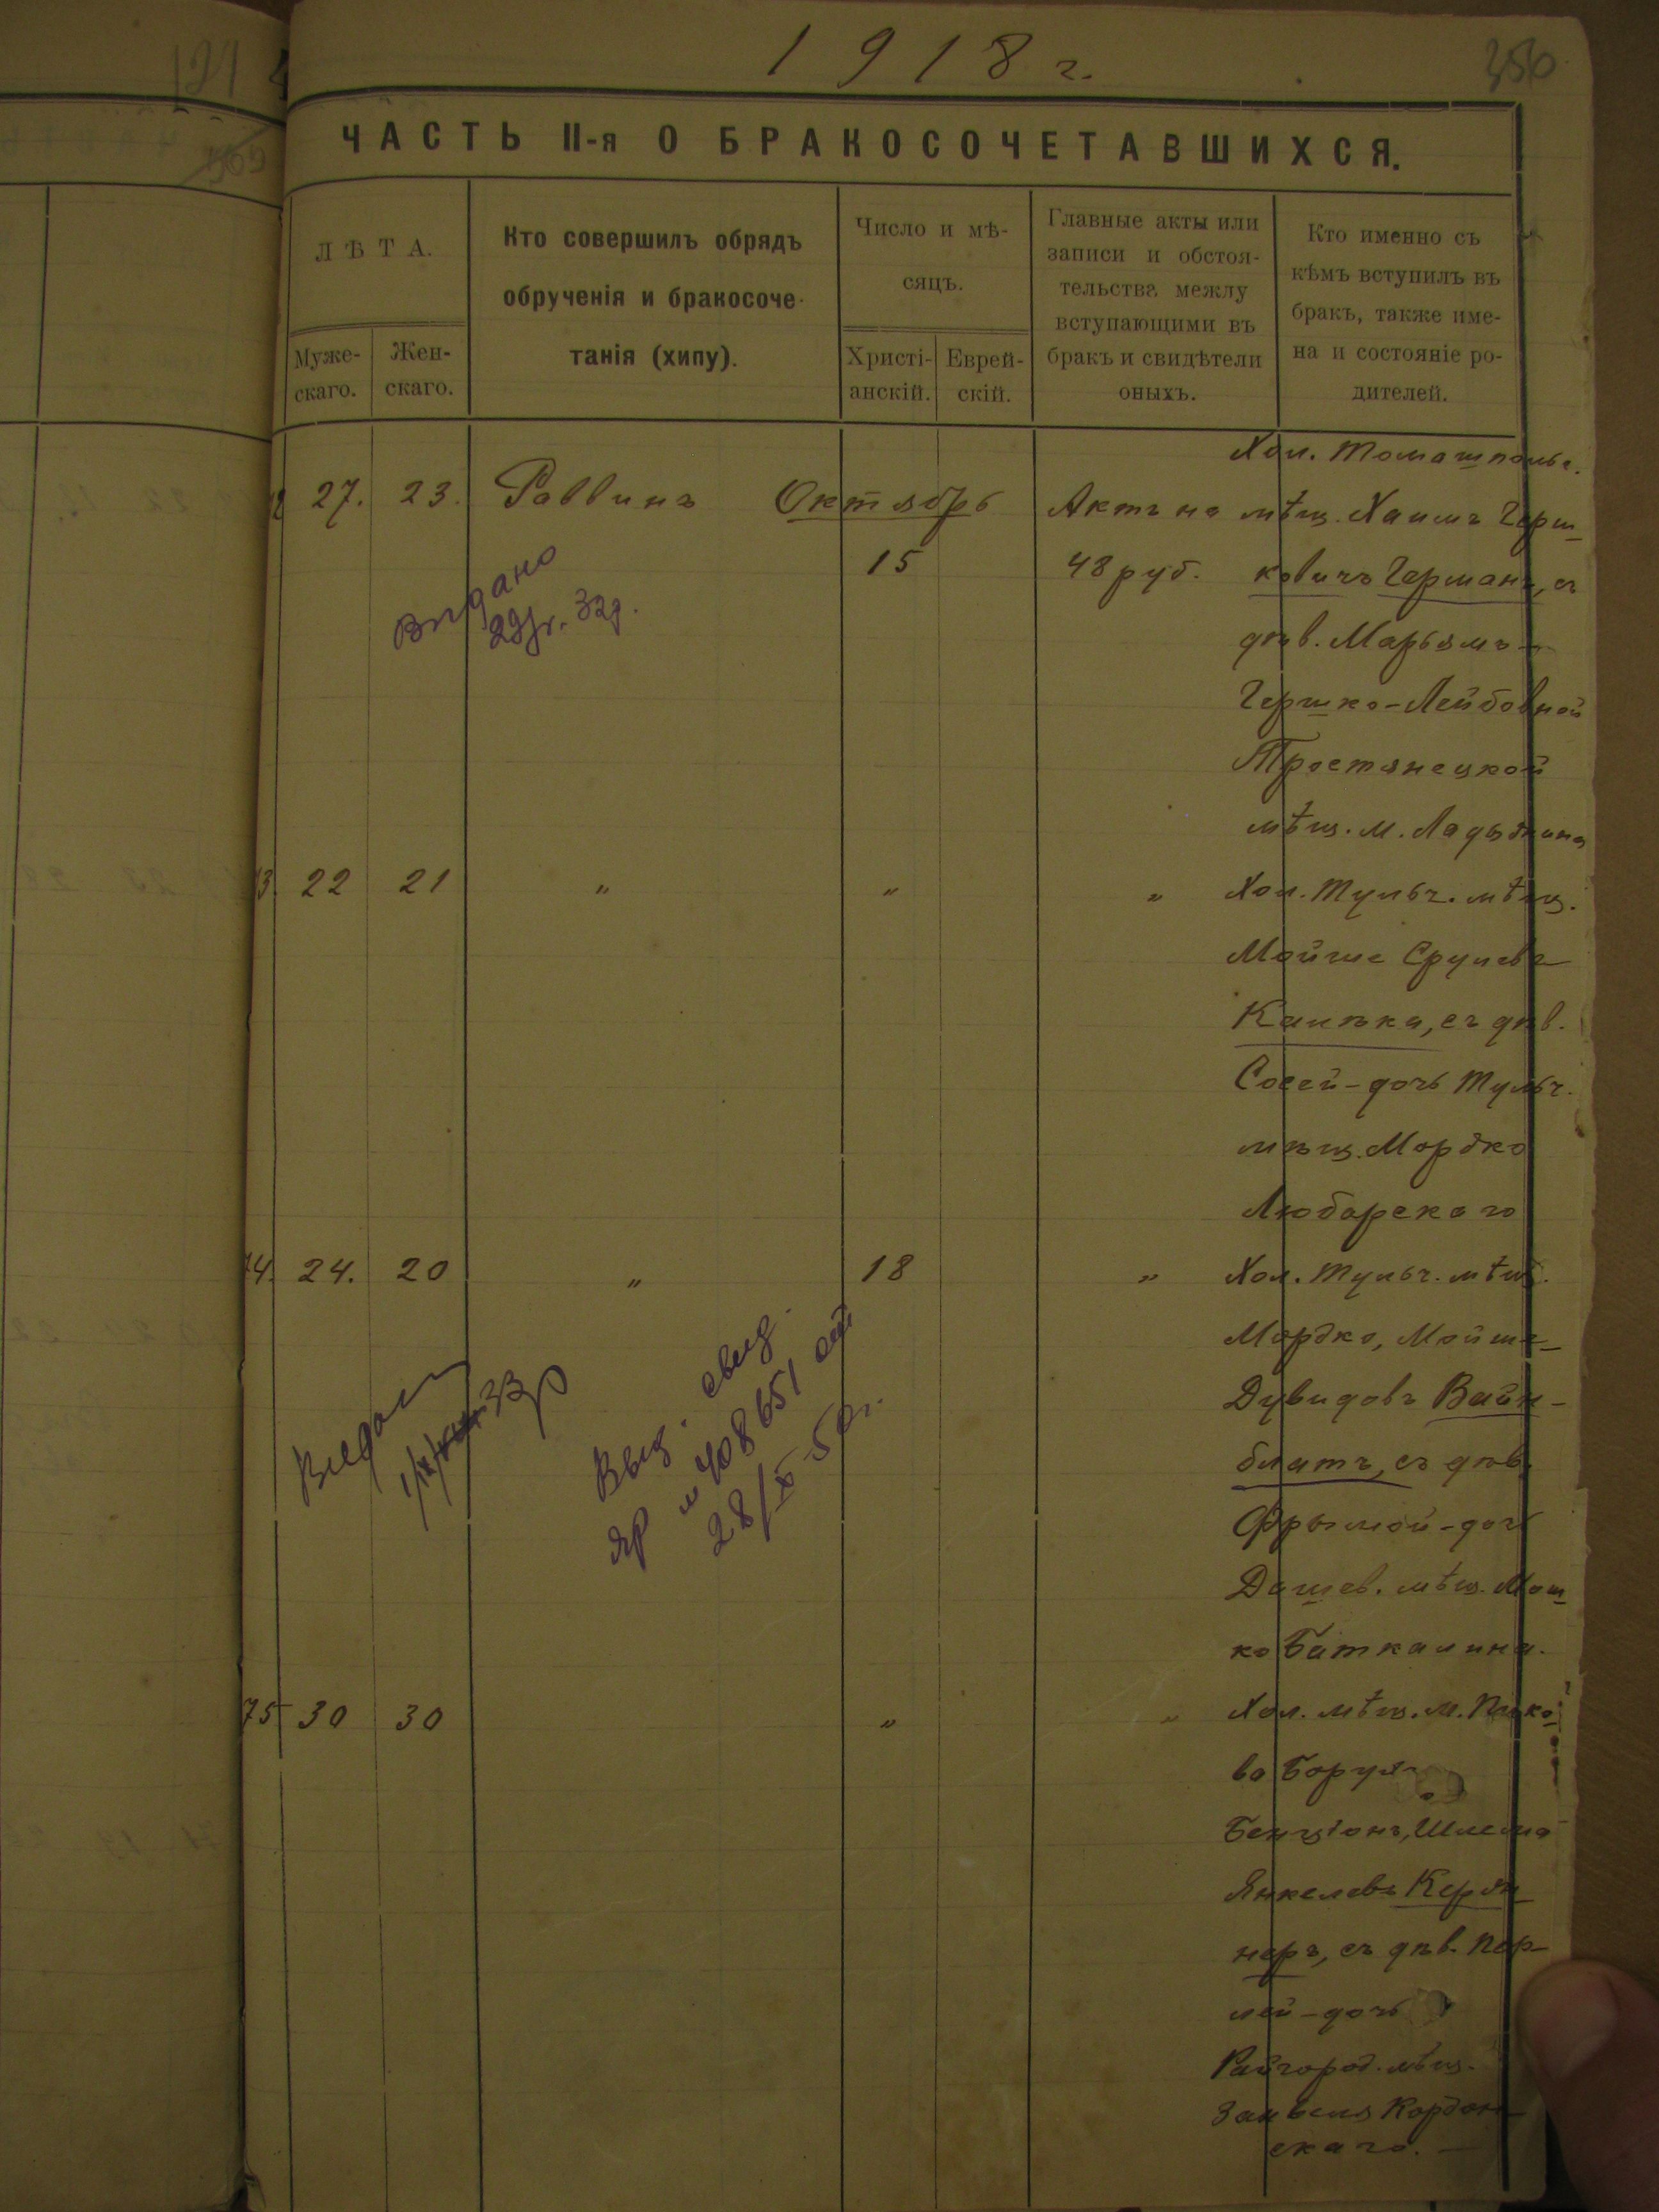 1918 г.
350
ЧАСТЬ II-я О БРАКОСОЧЕТАВШИХСЯ.
ЛѢТА.
Муже-
скаго.
Жен-
скаго.
Кто совершилъ обрядъ
обрученія и бракосоче-
танія (хипу).
Число и мѣ-
сяцъ.
Христі-
анскій.
Еврей-
скій.
Главные акты или
записи и обстоя-
тельства между
вступающими въ
бракъ и свидѣтели
оныхъ.
Кто именно съ
кѣмъ вступилъ въ
бракъ, также име-
на и состояніе ро-
дителей.
27. 23. Раввинъ Октябрь
15
Актъ на
48 руб.
Хол. Томашпольс.
мѣщ. Хаимъ Герш
ковичъ Германъ, съ
дѣв. Марьямъ-
Гершко-Лейбовной
Тростянецкой
мѣщ. м. Ладыжина
Выдано
32г.
13. 22 21 " " "
Хол. Тульч. мѣщ.
Мойше Срулевъ
съ дѣв.
Сосей-дочь Тульч.
мѣщ. Мордко
Любарскаго
14. 24. 20 " 18 "
Хол. Тульч. мѣщ.
Мордко, Мойше-
Дувидовъ Вайн-
блатъ, съ дѣв.
Фрымой-доч
Дашев. мѣщ. Мош
ко Баткалина.
Выдан
33
Выд. свид.
ЯР № 408651
28/X-50г.
75 30 30 " "
Хол. мѣщ. м. Пико
ва Борух
Бенціонъ, Шлема
Янкелевъ Кержн
неръ, съ дѣв. Пер-
лей-дочь
Райгород. мѣщ.
Занвеля Кордон-
скаго.